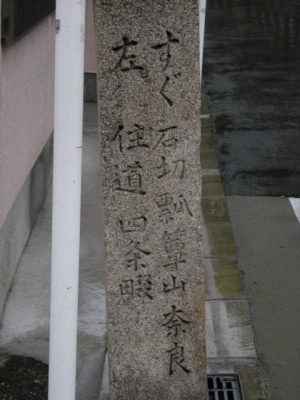 すぐ 石切 瓢簞山 奈良
左 住道 四条畷